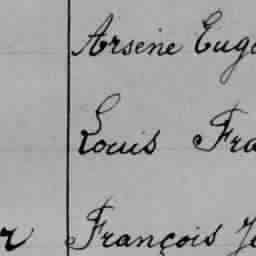 Arsène Eug
Louis Fra
r François J